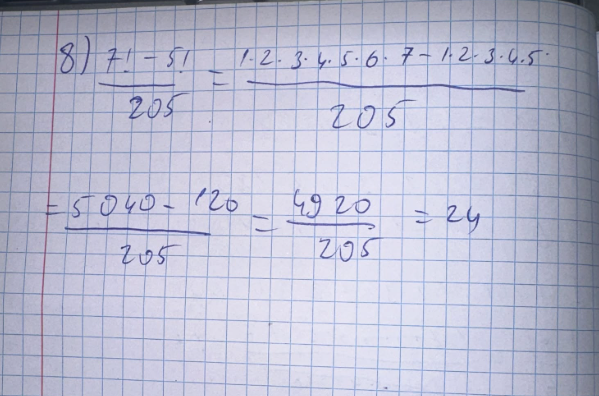 8) (7! - 5!)/205 = (1·2·3·4·5·6·7 - 1·2·3·4·5·)/205
= (5040 - 120)/205 = 4920/205 = 24